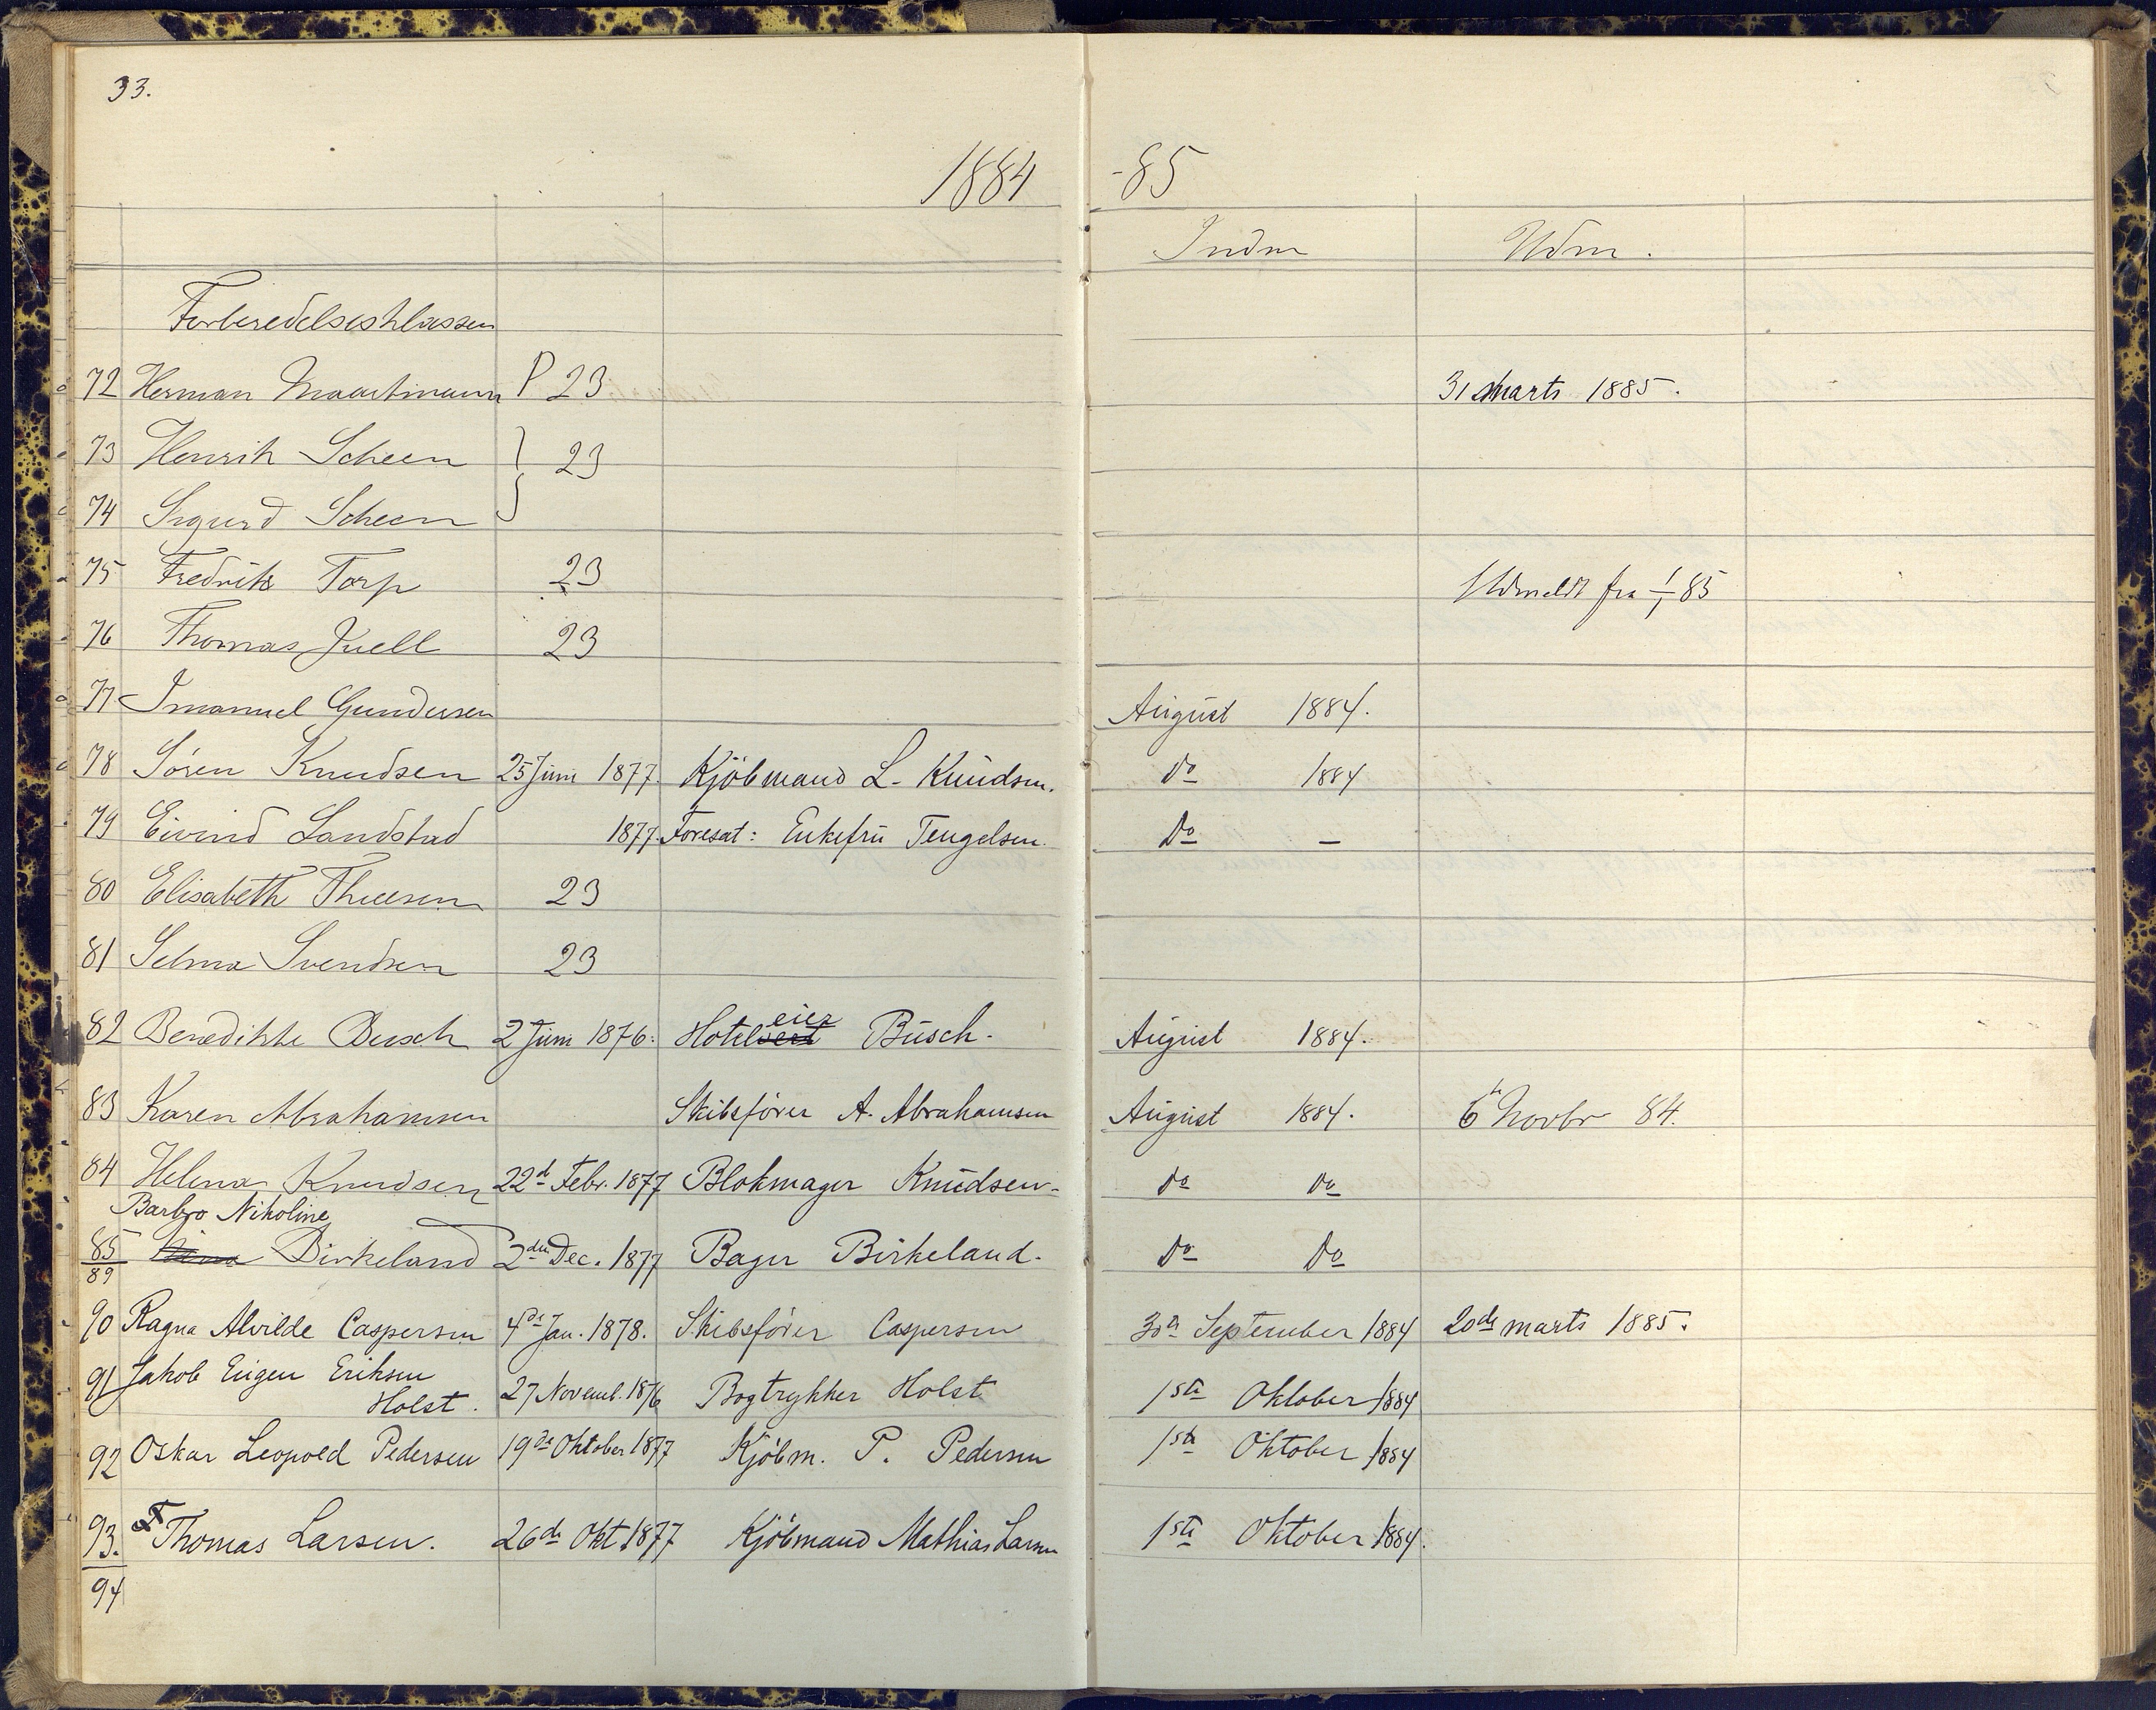 33.
1884 -85
Indm Udm.
Forberedelsesklassen
72 Herman Maartmann P 23 31 Marts 1885.
73 Henrik Scheen } 23
74 Sigurd Scheen
75 Fredrik Torp 23 Udmeldt fra 1/1 85
76 Thomas Juell 23
77 Imanuel Gundersen August 1884.
78 Sören Knudsen 25 Juni 1877. Kjöbmand L. Knudsen. do 1884
79 Eivind Landstad 1877. Foresat: Enkefru Tengelsen. Do —
80 Elisabeth Thuesen 23
81 Selma Svendsen 23
82 Benedikte Busch 2 Juni 1876. Hoteleier Busch. August 1884.
83 Karen Abrahamsen Skibsförer A. Abrahamsen August 1884. 6te Novbr 84.
84 Helena Knudsen 22d Febr. 1877 Blokmager Knudsen do do
Barbro Nikoline
85 Birkeland 2den Dec. 1877 Bager Birkeland. Do Do
89
90 Ragna Alvilde Caspersen 4de Jan. 1878. Skibsförer Caspersen 30te September 1884 20de marts 1885.
91 Jakob Eugen Eriksen
Holst. 27 Novemb. 1876 Bogtrykker Holst 1ste Oktober 1884
92 Oskar Leopold Pedersen 19de Oktober 1877 Kjöbm. P. Pedersen 1ste Oktober 1884
93. Thomas Larsen. 26de Okt. 1877 Kjöbmand Mathias Larsen 1ste Oktober 1884.
94